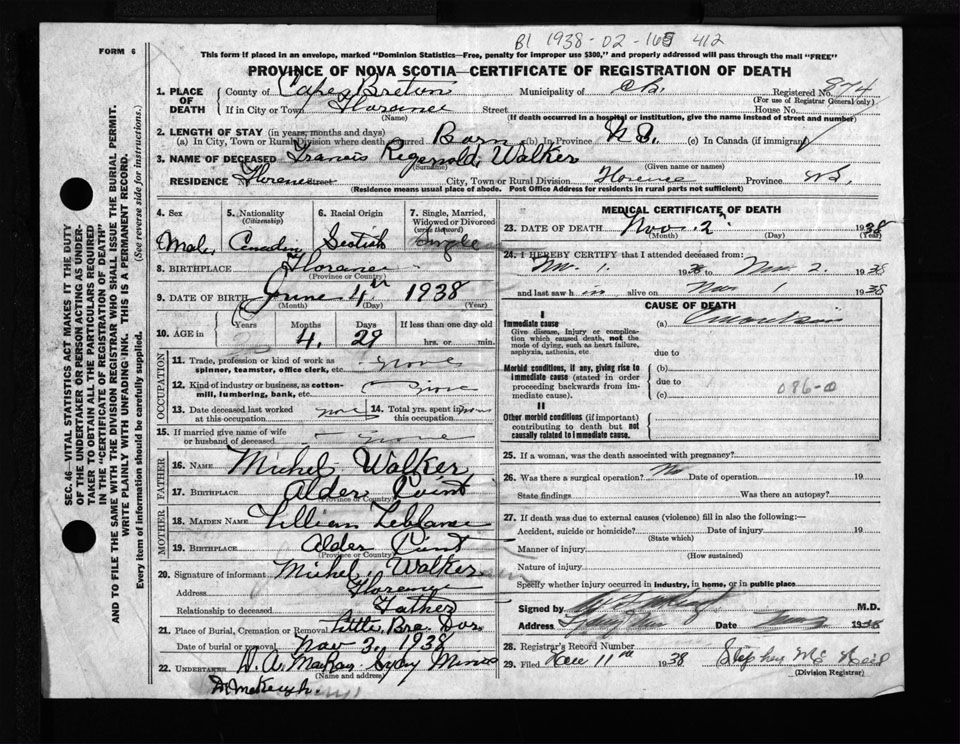 B1 1938-02-165 412
FORM 6
This form if placed in an envelope, marked "Dominion Statistics—Free, penalty for improper use $300," and properly addressed will pass through the mail "FREE"
PROVINCE OF NOVA SCOTIA—CERTIFICATE OF REGISTRATION OF DEATH
1. PLACE OF DEATH
County of Cape Breton Municipality of C.B. Registered No. 874
(For use of Registrar General only)
If in City or Town Florence Street House No.
(Name) (If death occurred in a hospital or institution, give the name instead of street and number)
2. LENGTH OF STAY (in years, months and days)
(a) In City, Town or Rural Division where death occurred Born (b) In Province N.S. (c) In Canada (if immigrant)
3. NAME OF DECEASED Francis Regenold Walker
(Surname) (Given name or names)
RESIDENCE Florence Street City, Town or Rural Division Florence Province N.S.
(Residence means usual place of abode. Post Office Address for residents in rural parts not sufficient)
4. Sex 5. Nationality (Citizenship) 6. Racial Origin 7. Single, Married, Widowed or Divorced (write the word)
Male Canadian Scotish Single
8. BIRTHPLACE Florence
(Province or Country)
9. DATE OF BIRTH June 4th 1938
(Month) (Day) (Year)
10. AGE in Years Months Days If less than one day old
4 29 hrs. or min.
OCCUPATION
11. Trade, profession or kind of work as spinner, teamster, office clerk, etc. None
12. Kind of industry or business, as cotton-mill, lumbering, bank, etc. None
13. Date deceased last worked at this occupation None 14. Total yrs. spent in this occupation None
15. If married give name of wife or husband of deceased None
FATHER
16. NAME Michel Walker
17. BIRTHPLACE Alder Point
(Province or Country)
MOTHER
18. MAIDEN NAME Lillian Leblanc
19. BIRTHPLACE Alder Point
(Province or Country)
20. Signature of informant Michel Walker
Address Florence
Relationship to deceased Father
21. Place of Burial, Cremation or Removal Little Bra Dor
Date of burial or removal Nov 3 1938
22. UNDERTAKER W. A. MacKay Sydny Mines
(Name and address)
Dr. McKeough.
MEDICAL CERTIFICATE OF DEATH
23. DATE OF DEATH Nov. 2 1938
(Month) (Day) (Year)
24. I HEREBY CERTIFY that I attended deceased from
Nov. 1 1938 to Nov. 2 1938
and last saw him alive on Nov 1 1938
CAUSE OF DEATH
I
Immediate cause (a)
Give disease, injury or complication which caused death, not the mode of dying, such as heart failure, asphyxia, asthenia, etc. due to
Morbid conditions, if any, giving rise to immediate cause (stated in order proceeding backwards from immediate cause). (b)
due to 086-0
(c)
II
Other morbid conditions (if important) contributing to death but not causally related to immediate cause.
25. If a woman, was the death associated with pregnancy?
26. Was there a surgical operation? No Date of operation 19
State findings Was there an autopsy?
27. If death was due to external causes (violence) fill in also the following:—
Accident, suicide or homicide? Date of injury 19
(State which)
Manner of injury
(How sustained)
Nature of injury
Specify whether injury occurred in industry, in home, or in public place
Signed by M.D.
Address Date 1938
28. Registrar's Record Number
29. Filed Nov 11th 1938 Stephen Mc Neil
(Division Registrar)
SEC. 46—VITAL STATISTICS ACT MAKES IT THE DUTY OF THE UNDERTAKER OR PERSON ACTING AS UNDERTAKER TO OBTAIN ALL THE PARTICULARS REQUIRED IN THE "CERTIFICATE OF REGISTRATION OF DEATH" AND TO FILE THE SAME WITH THE DIVISION REGISTRAR WHO SHALL ISSUE THE BURIAL PERMIT.
WRITE PLAINLY WITH UNFADING INK. THIS IS A PERMANENT RECORD.
Every item of information should be carefully supplied. (See reverse side for instructions.)